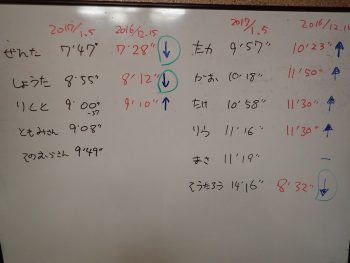 2017/1.5 2016/12.15
ぜんた 7'47" 7'28" ↓
しょうた 8'55" 8'12" ↓
りくと 9'00" 9'10" ↑
-37
ともみさん 9'08"
そのえっらさん 9'49"
2017/1.5 2016/12.15
たか 9'57" 10'23" ↑
かあい 10'18" 11'50" ↑
たけ 10'58" 11'30" ↑
りう 11'16" 11'30" ↑
まさ 11'19" —
そうたろう 14'16" 8'32" ↓